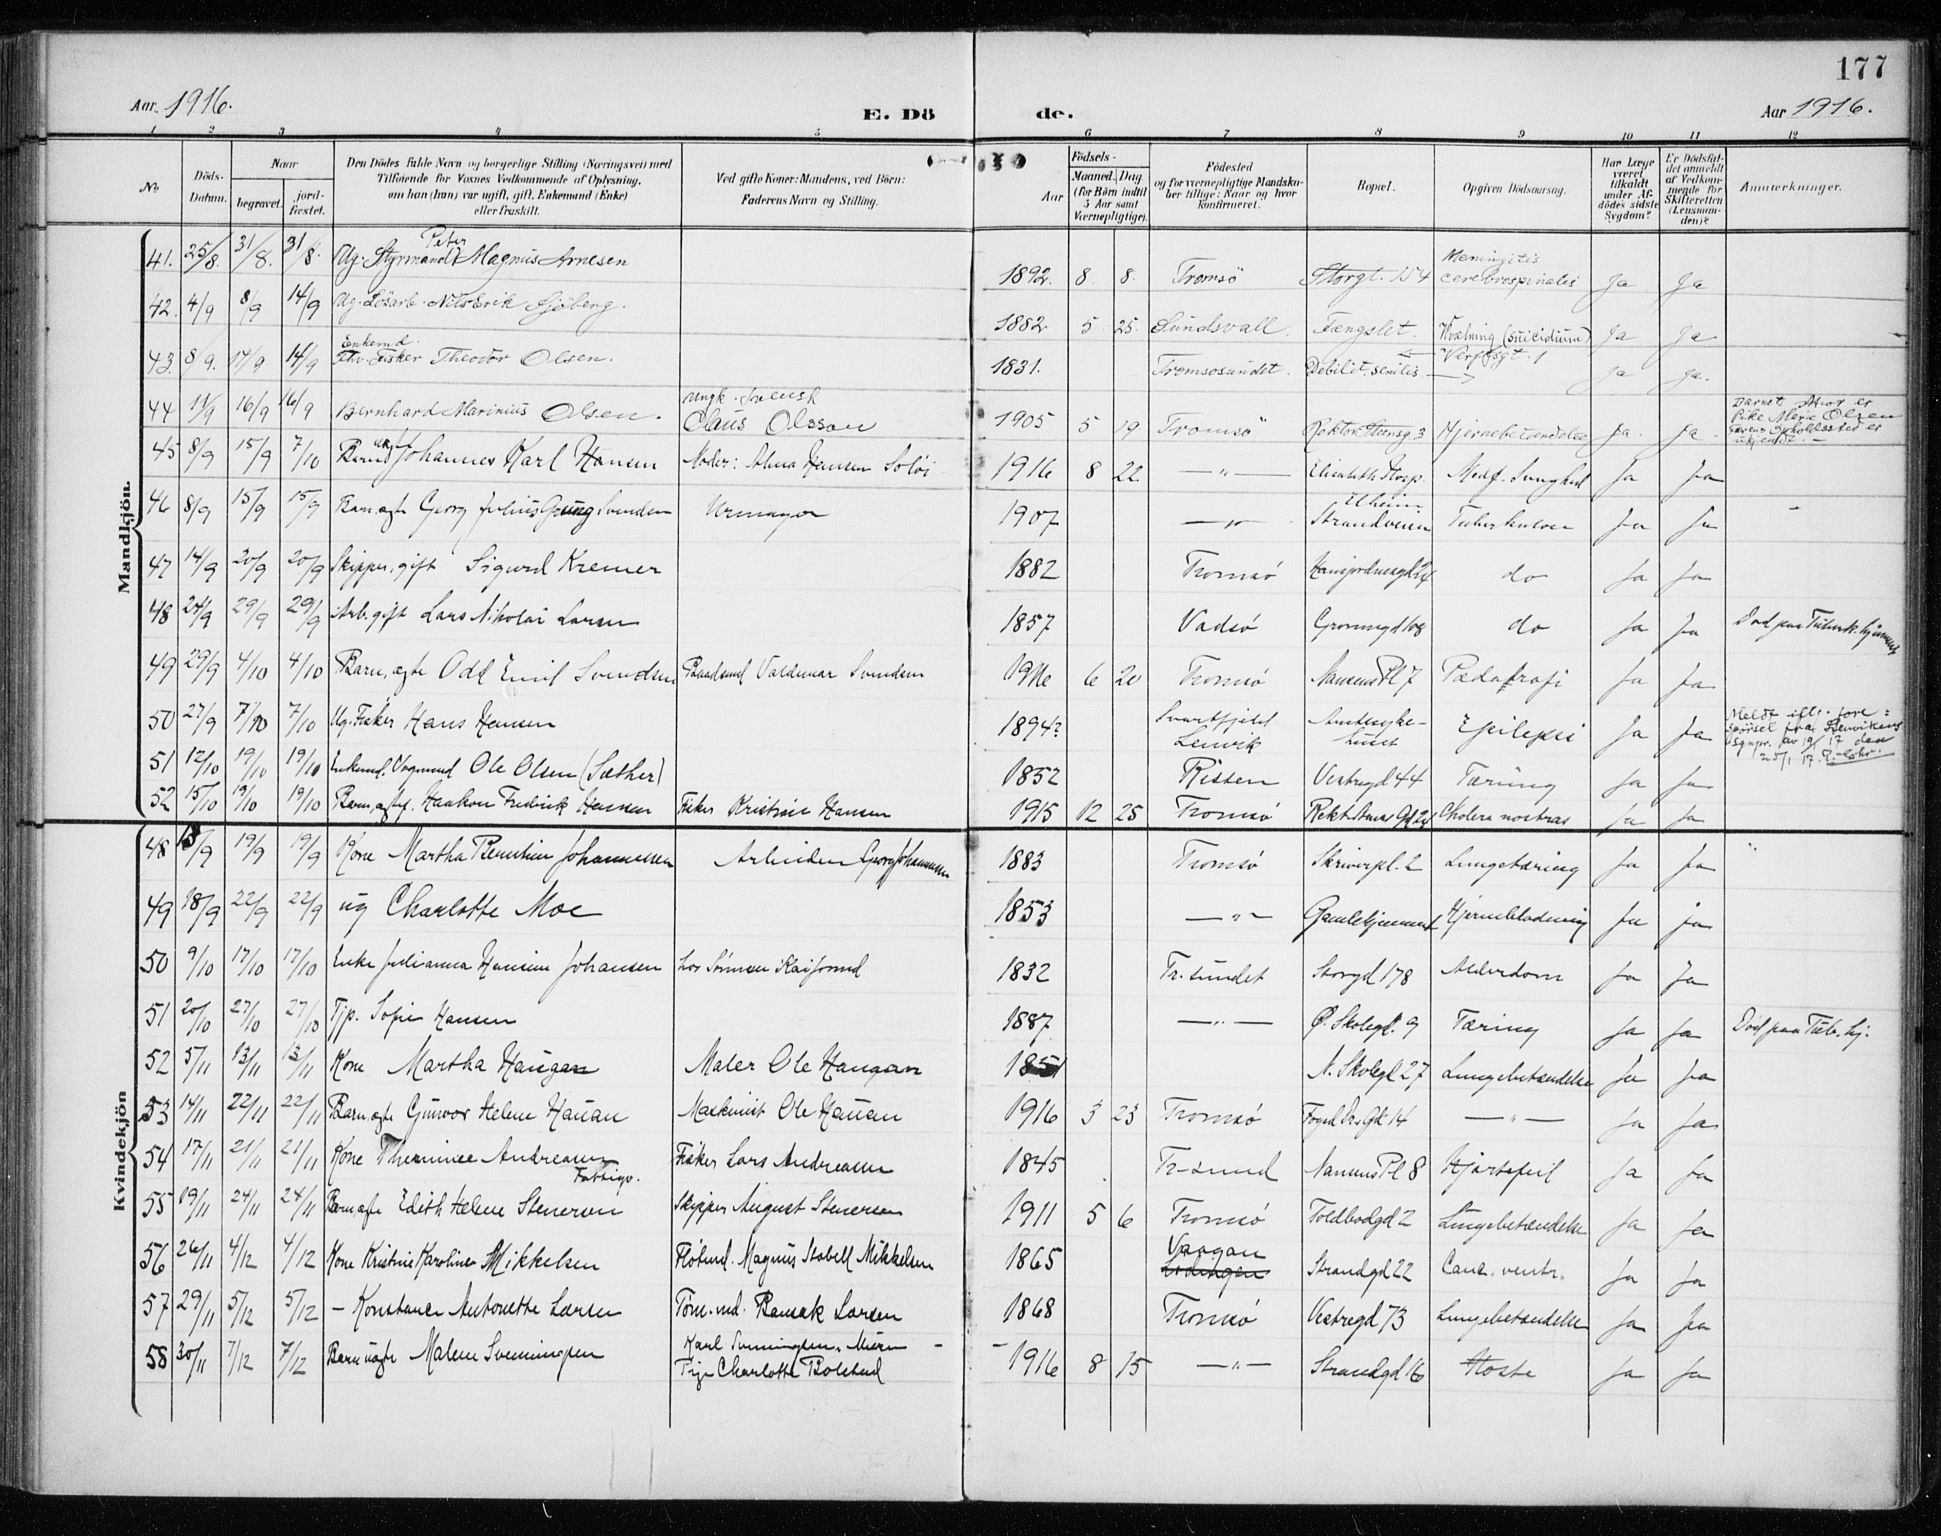 177
Aar 1916.
E. Dö
de.
Aar 1916.
1 2 3 4 5 6 7 8 9 10 11 12
No
Döds-Datum.
Naar
begravet.
jord-fæstet.
Den Dödes fulde Navn og borgerlige Stilling (Næringsvei) med
Tilföiende for Voxnes Vedkommende af Oplysning,
om han (hun) var ugift, gift, Enkemand (Enke)
eller fraskilt.
Ved gifte Koner: Mandens, ved Börn:
Faderens Navn og Stilling.
Födsels-
Aar
Maaned. Dag
(for Börn indtil
5 Aar samt
Værnepligtige).
Födested
og for værnepligtige Mandska-
ber tillige: Naar og hvor
konfirmeret.
Bopæl.
Opgiven Dödsaarsag.
Har Læge
været
tilkaldt
under Af-
dödes sidste
Sygdom?
Er Dödsfal-
det anmeldt
af Vedkom-
mende for
Skifteretten
(Lensman-
den)?
Anmærkninger.
Mandkjön.
41. 25/8. 31/8. 31/8. Ug. Styrmand Peter Magnus Arnesen 1892. 8. 8. Tromsö Storgt. 154 Meningitis cerebrospinalis Ja Ja
42. 4/9 8/9 14/9 Ug. Lösarb. Nils Erik Sjöberg. 1882. 5 25. Sundsvall. Fængslet. Kvælning (suicidium) Ja Ja
43. 8/9. 14/9 14/9 Enkemd. Fisker Theodor Olsen. 1831. Tromsosundet. Debilit. senilis Verftsgt. 1 Ja Ja.
44 11/9 16/9 16/9 Bernhard Marinius Olsen. Ungk. svensk Claus Olsson 1905 5 19 Tromsö Rektor Steensg 3 Hjernebetændelse Ja. Ja. Barnets Mor er Pike Merie Olsen
45 8/9 15/9 7/10 Barn uægte Johannes Karl Hansen Moder: Alma Hansen 1916 8 22 —"— Elisabeth Storp. Medf. Svaghed Ja Ja
46 8/9 15/9 15/9 Barn, ægte Georg Julius Svendsen Urmager 1907 —"— Elheim Strandveien Tuberkulose Ja Ja
47 14/9 20/9 20/9 Skipper, gift Sigurd Kremer 1882 Tromsö do Ja Ja
48 24/9 29/9 29/9 Arb. gift Lars Nikolai Larsen 1857 Vadsö Grönnegd 108 do Ja Ja Död paa Tuberk.hjemmet
49 29/9 4/10 4/10 Barn, ægte Odd Emil Svendsen Valdemar Svendsen 1916 6 20 Tromsö Nansens Pl 7 Pædatrofi Ja Ja
50 27/9 7/10 7/10 Ug. Fisker Hans Hansen 1894? Svartfjeld Lenvik Amtssyke-huset Epilepsi Ja Ja
51 12/10 19/10 19/10 Enkemd. Vognmand Ole Olsen (Sæther) 1852 Rissen Vestregd 44 Tæring Ja Ja
52 15/10 19/10 19/10 Barn, ægte. Haakon Fredrik Hansen Fisker Kristian Hansen 1915 12 25 Tromsö Rekt. Steens Gd 24 Cholera nostras Ja Ja
Kvindekjön
48 13/9 19/9 19/9 Kone Martha Johannessen Arbeider Georg Johannessen 1883 Tromsö Skriverpl. 2 Lungetæring Ja Ja
49 18/9 22/9 22/9 ug Charlotte Moe 1853 —"— Gamlehjemmet Hjerneblödning Ja Ja
50 9/10 17/10 17/10 Enke Julianna Hansine Johansen 1832 Tr. sundet Storgd 178 Alderdom Ja Ja
51 20/10 27/10 27/10 Tjp. Sofie Hansen 1887 —"— Ø. Skolegt. 9 Tæring Ja Ja Död paa Tub. hj.
52 5/11 13/11 13/11 Kone Martha Haugan Maler Ole Haugan 1851 N. Skolegd 27 Lungebetændelse Ja Ja
53 14/11 22/11 22/11 Barn, ægte Gunvor Helene Hauan Maskinist Ole Hauan 1916 3 23 Tromsö Gd 14 —"— Ja Ja
54 17/11 21/11 21/11 Kone Andreasen Fattigv. Fisker Lars Andreasen 1845 Tr-sund Nansens Pl 8 Hjertefeil Ja Ja
55 19/11 24/11 24/11 Barn, ægte Edith Helene Stenersen Skipper August Stenersen 1911 5 6 Tromsö Toldbodgd 2 Lungebetændelse Ja Ja
56 26/11 4/12 4/12 Kone Kristine Karoline Mikkelsen Magnus Stabell Mikkelsen 1865 Vaagan Lödingen Strandgd 22 Canc. ventr. Ja Ja
57 29/11 5/12 5/12 — Konstance Antonette Larsen Töm. md. Larsen 1868 Tromsö Vestregd 73 Lungebetændelse Ja Ja
58 30/11 7/12 7/12 Barn uægte Malene Svenningsen Karl Svenningsen, Pige Charlotte Bolstad 1916 8 15 —"— Strandgd 16 Hoste Ja Ja